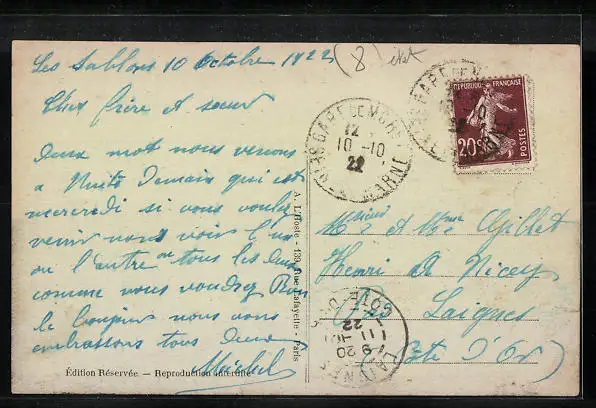 Les Sablons 10 Octobre 1922
(8)
Cher frère et soeur
Deux mot nous venons
a Nuits Demain qui est
mercredi si vous voulez
venir nous voir l'un
ou l'autre ou tous les deux
comme vous voudrez Bon
le bonjour nous vous
embrassons tous deux
Michel
Édition Réservée — Reproduction interdite
A. L'Hoste - 139, Rue Lafayette - Paris
GARE
12
10-10
22
MARNE
RÉPUBLIQUE FRANÇAISE
20c
POSTES
et Mme Gillet
Henri De Nicey
Laignes
(Côte D'Or)
LAIGNES
CÔTE-D'OR
9 20
11 -10
22